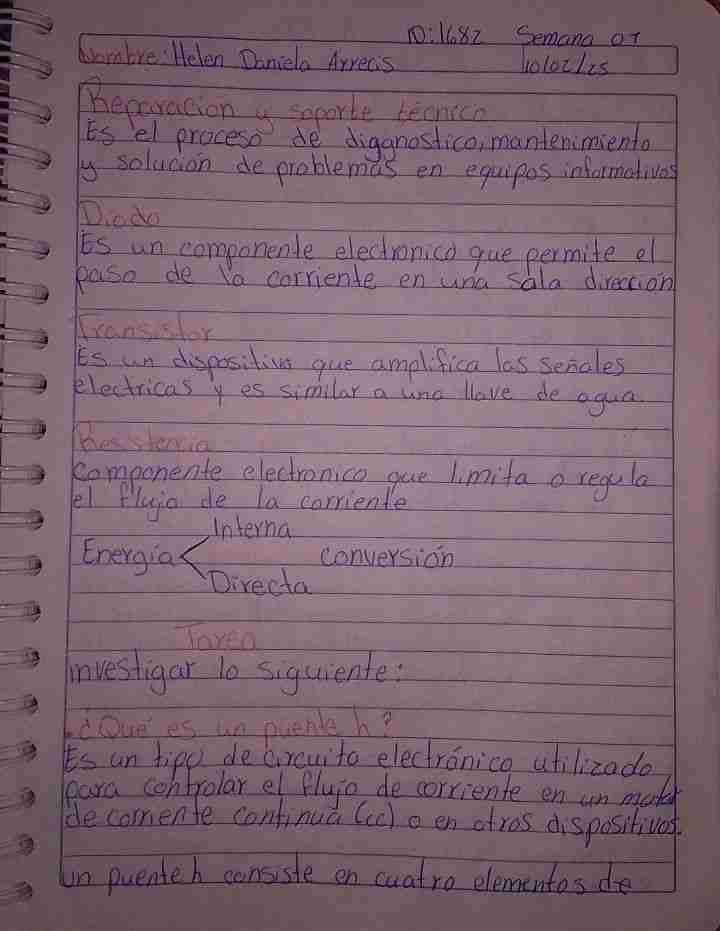 ID:1682 Semana 01
Nombre: Helen Daniela Arreas 10/02/25
Reparación y soporte técnico
Es el proceso de diggnostico, mantenimiento
y solución de problemas en equipos informativos
Diodo
Es un componente electronico que permite el
paso de la corriente en una sala dirección
Transistor
Es un dispositivo que amplifica las señales
electricas y es similar a una llave de agua.
Resistencia
Componente electronico que limita o regula
el flujo de la corriente
Interna
Energía < conversión
Directa
Tarea
investigar lo siguiente:
¿Qué es un puente h?
Es un tipo de circuito electrónico utilizado
para controlar el flujo de corriente en un motor
de corriente continua (cc) o en otros dispositivos.
un puente h consiste en cuatro elementos de